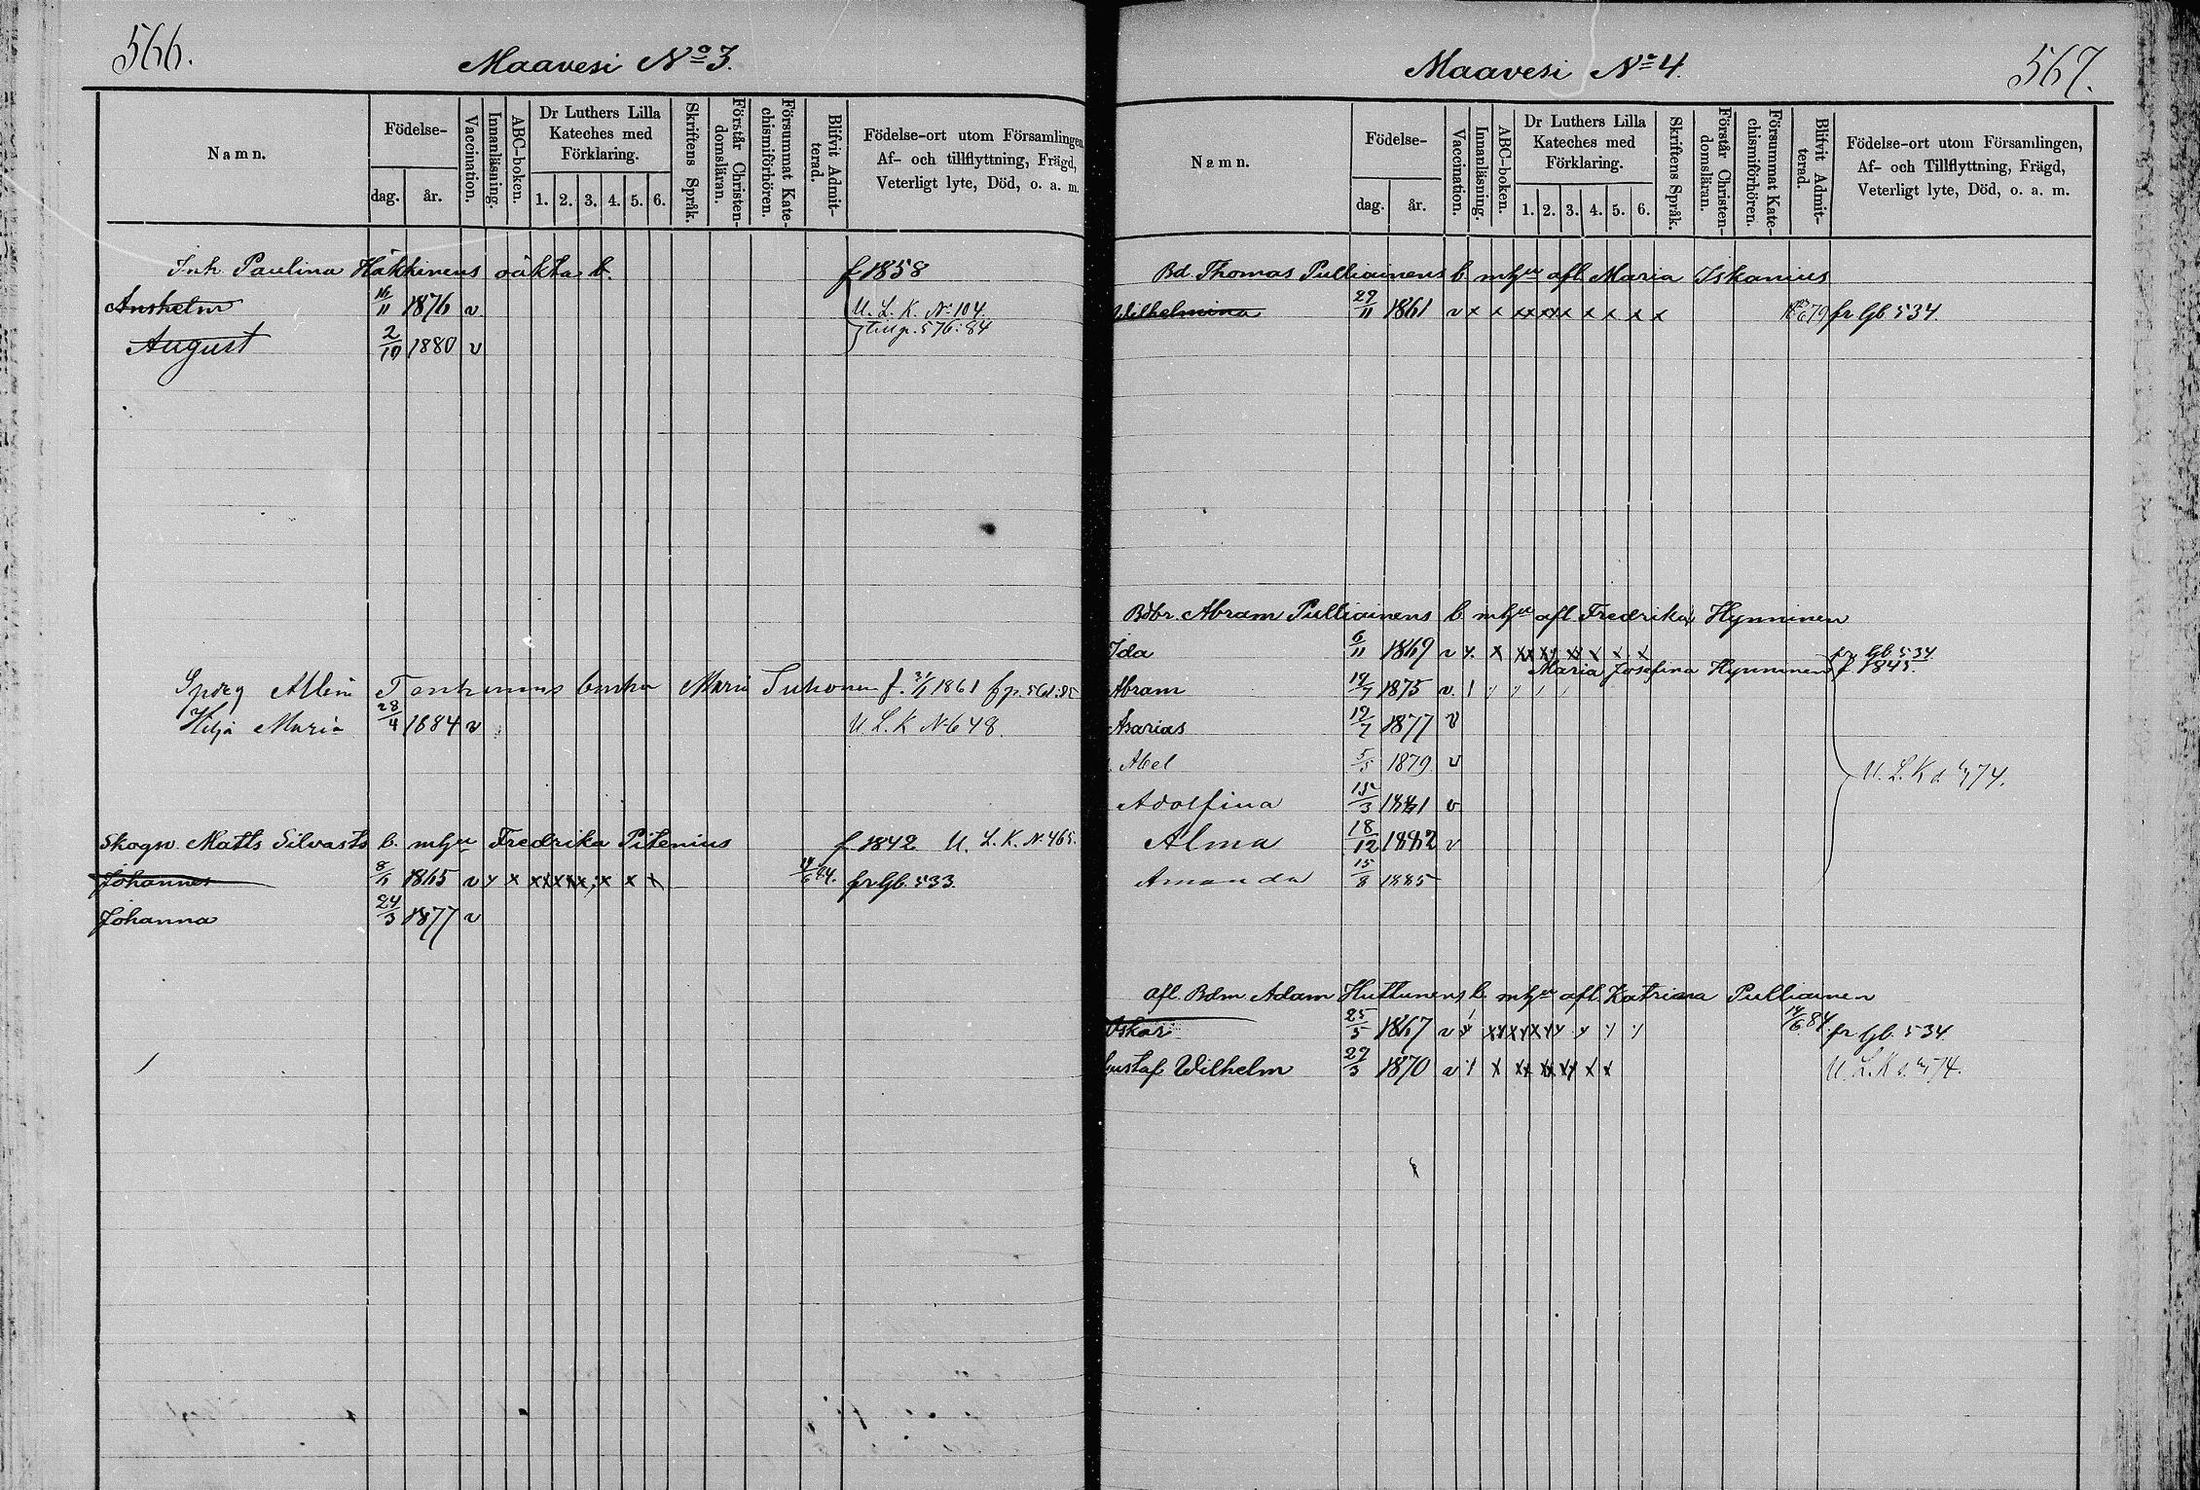 566.
Maavesi No 3.
Namn.
Födelse-
dag. år.
Vaccination.
Innanläsning.
ABC-boken.
Dr Luthers Lilla
Kateches med
Förklaring.
1. 2. 3. 4. 5. 6.
Skriftens Språk.
Förstår Christen-
domsläran.
Försummat Kate-
chismiförhören.
Blifvit Admit-
terad.
Födelse-ort utom Församlingen
Af- och tillflyttning, Frägd,
Veterligt lyte, Död, o. a. m.
Inh Paulina Häkkinens oäkta b. f 1858
Anshelm 16/11 1876 v U. L. K. No 104.
August 2/10 1880 v p. 576:84
Maria f. 1861
Hilja Maria 28/4 1884 v U. L. K No 648.
Skogv. Matts Silvasts b. mhu Fredrika Pitenius f. 1842 U. L. K. No 465.
Johannes 8/1 1865 v y x x x x x x x x x 84. fr Gb. 533.
Johanna 24/3 1877 v
567.
Maavesi No 4.
Namn.
Födelse-
dag. år.
Vaccination.
Innanläsning.
ABC-boken.
Dr Luthers Lilla
Kateches med
Förklaring.
1. 2. 3. 4. 5. 6.
Skriftens Språk.
Förstår Christen-
domsläran.
Försummat Kate-
chismiförhören.
Blifvit Admit-
terad.
Födelse-ort utom Församlingen,
Af- och Tillflyttning, Frägd,
Veterligt lyte, Död, o. a. m.
Bd. Thomas Pulliainens b. mhu afl Maria Iskanius
Wilhelmina 29/11 1861 v x x xx xx x x x x x 79 fr Gb 534.
Bdbr. Abram Pulliainens b mhu afl Fredrika Hynninen
Ida 6/11 1869 v y. x xx xy xx x x x fr Gb 534.
Maria Josefina Hynninen f. 1845.
Abram 19/7 1875 v.
Asarias 19/7 1877 v
Abel 5/5 1879 v U. L. K 74.
Adolfina 15/3 1881 v
Alma 18/12 1882 v
Amanda 15/8 1885
Afl. Bdm Adam Huttunens b mhu afl. Katriina Pulliainen
Oskar 25/5 1867 v y 14/6 84 fr Gb. 534.
Gustaf Wilhelm 29/3 1870 v y x xx xx xy x x U. L. K 74.